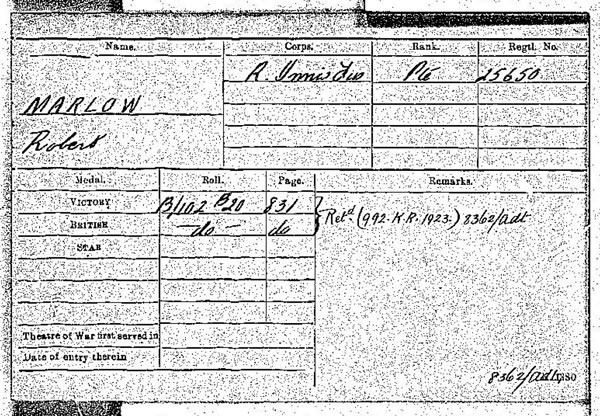 Name. Corps. Rank. Regtl. No.
R. Innis Fus Pte 25650
MARLOW
Robert
Medal. Roll. Page. Remarks.
VICTORY B/102 B20 831
BRITISH —do— do
Retd (992. K.R. 1923.) 8362/adt
STAR
Theatre of War first served in
Date of entry therein
8362/adt